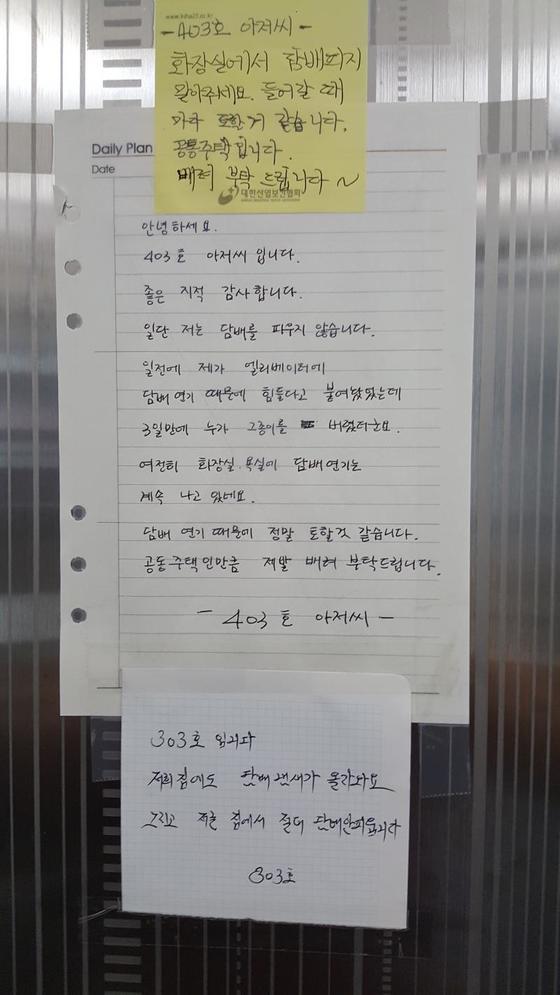 www.kiha21.or.kr
-403호 아저씨-
화장실에서 담배피지
말아주세요. 들어갈 때
마다 토할거 같습니다.
공통주택입니다.
배려 부탁드립니다~
대한산업보건협회
Daily Plan
Date
안녕하세요.
403호 아저씨 입니다.
좋은 지적 감사합니다.
일단 저는 담배를 피우지 않습니다.
일전에 제가 엘리베이터에
담배연기 때문에 힘들다고 붙여놨었는데
3일만에 누가 그종이를 버렸더군요.
여전히 화장실.욕실에 담배연기는
계속 나고 있네요.
담배 연기 때문에 정말 토할것 같습니다.
공동주택인만큼 제발 배려 부탁드립니다.
- 403호 아저씨 -
303호 입니다
저희집에도 담배냄새가 올라와요
그리고 저흰 집에서 절대 담배안피웁니다
303호